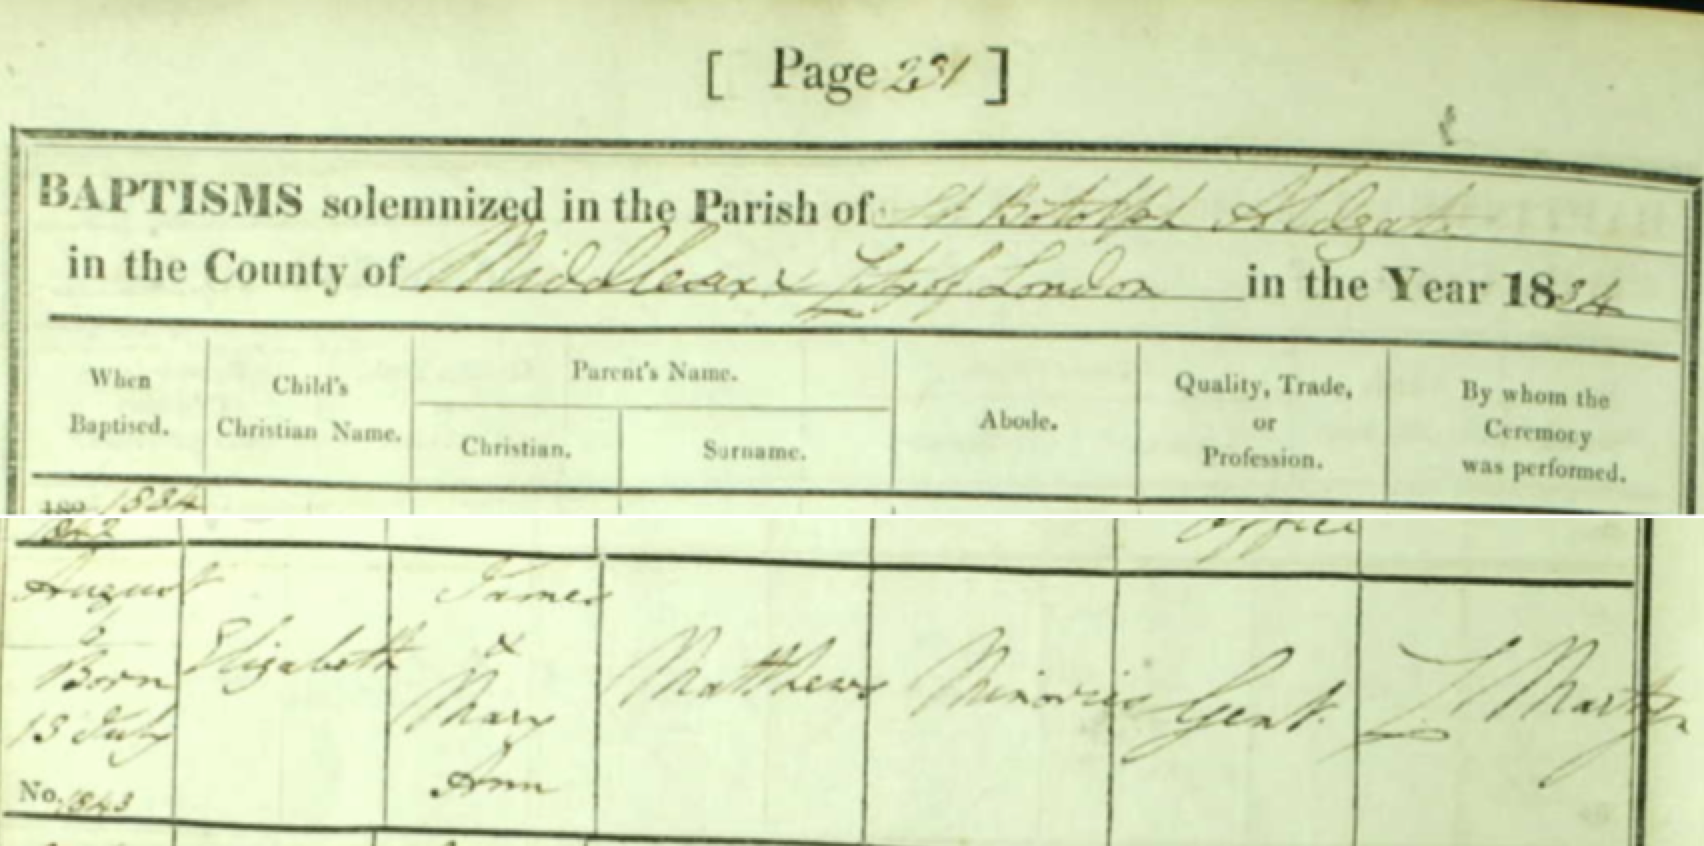 [ Page 231 ]
BAPTISMS solemnized in the Parish of St Botolph Aldgate
in the County of Middlesex & City of London in the Year 1834
When Baptised.
Child's Christian Name.
Parent's Name.
Christian.
Surname.
Abode.
Quality, Trade, or Profession.
By whom the Ceremony was performed.
1834
1842
Office
August
6
Born
13 July
No. 1843
Elizabeth
James
&
Mary
Ann
Matthews
Minories
Gent.